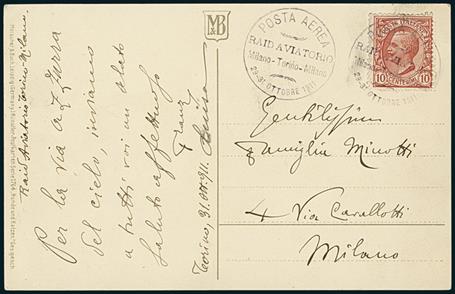 Raid Aviatorio Torino-Milano.
Per la via azzurra
del cielo, inviamo
a tutti voi un alato
saluto affettuoso
Franz
Torino, 31. Ott. 911.
MB
POSTA AEREA
RAID AVIATORIO
Milano-Torino-Milano
29-31 OTTOBRE 1911
POSTE ITALIANE
10 CENTESIMI 10
Gentilissima
Famiglia Minotti
4 Via Cavallotti
Milano